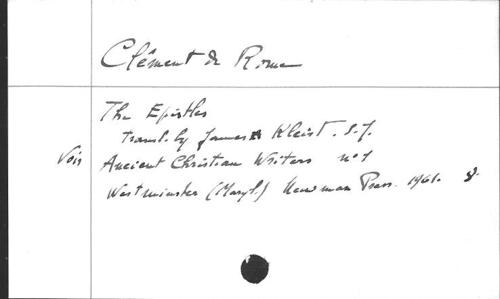 Clément de Rome
The Epistles
transl. by James A Kleist. S.J.
Vois Ancient Christian Writers no 1
Westminster (Maryl.) Newman Press. 1961. 8.